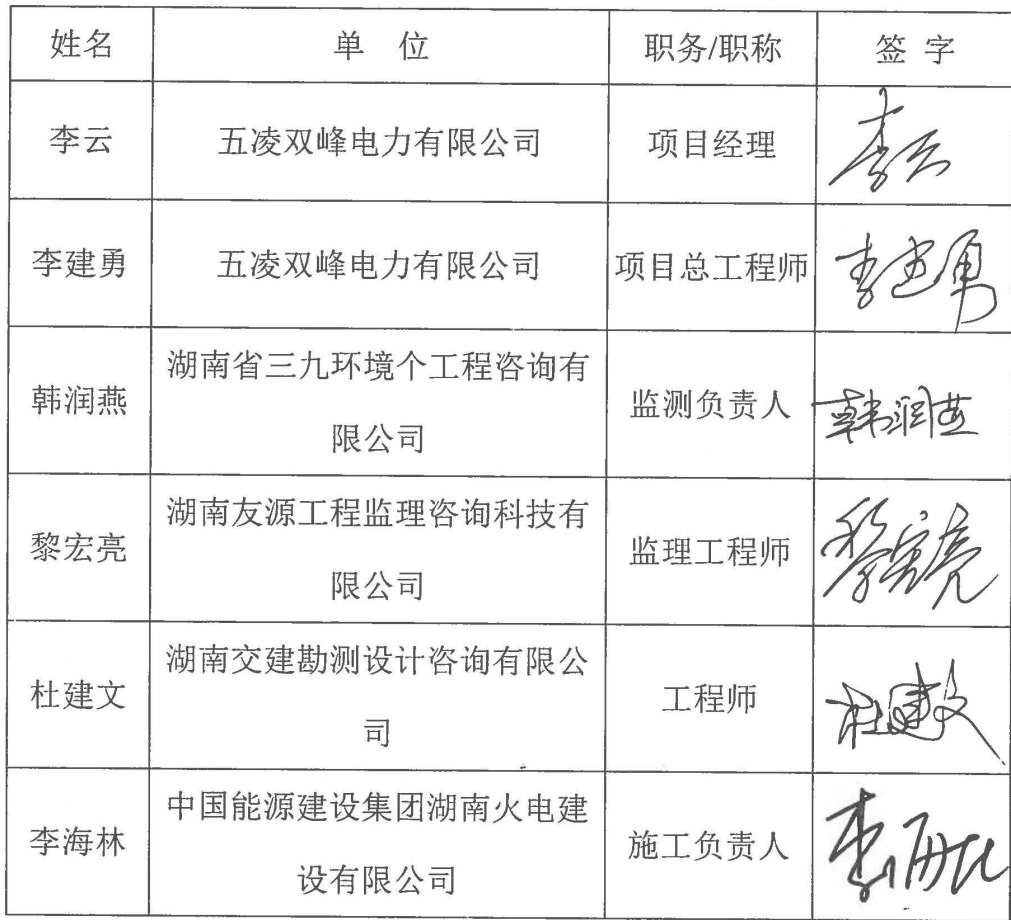 姓名 单 位 职务/职称 签 字
李云 五凌双峰电力有限公司 项目经理 李云
李建勇 五凌双峰电力有限公司 项目总工程师 李建勇
湖南省三九环境个工程咨询有
韩润燕 监测负责人 韩润燕
限公司
湖南友源工程监理咨询科技有
黎宏亮 监理工程师 黎宏亮
限公司
湖南交建勘测设计咨询有限公
杜建文 工程师 杜建文
司
中国能源建设集团湖南火电建
李海林 施工负责人
设有限公司